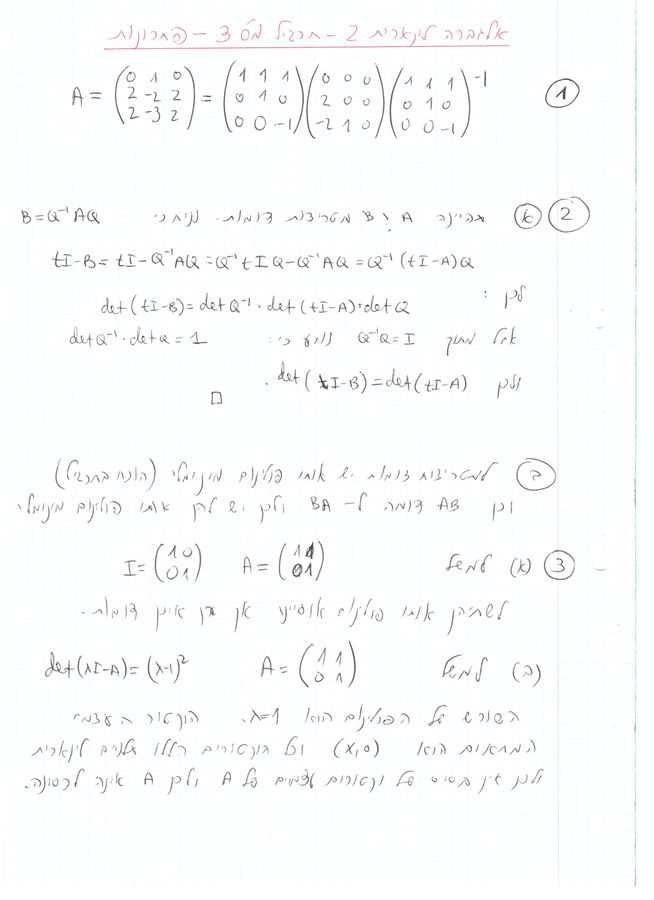 אלגברה לינארית 2 - תרגיל מס' 3 - פתרונות
① A = (0 1 0; 2 -2 2; 2 -3 2) = (1 1 1; 0 1 0; 0 0 -1)(0 0 0; 2 0 0; -2 1 0)(1 1 1; 0 1 0; 0 0 -1)⁻¹
② א תהיינה A ו B מטריצות דומות. נניח כי B=Q⁻¹AQ
tI-B = tI-Q⁻¹AQ = Q⁻¹tIQ-Q⁻¹AQ = Q⁻¹(tI-A)Q
לכן: det(tI-B) = detQ⁻¹·det(tI-A)·detQ
אבל מתוך Q⁻¹Q=I נובע כי: detQ⁻¹·detQ = 1
ולכן det(tI-B)=det(tI-A). □
ב למטריצות דומות יש אותו פולינום מינימלי (הוכח בתרגיל)
וכן AB דומה ל-BA ולכן יש להן אותו פולינום מינימלי
③ (א) למשל A = (1 1; 0 1) I = (1 0; 0 1)
לשתיהן אותו פולינום אופייני אך הן אינן דומות.
(ב) למשל A = (1 1; 0 1) det(λI-A)=(λ-1)²
השורש של הפולינום הוא λ=1. הוקטור העצמי
המתאים הוא (x,0) וכל הוקטורים הללו תלויים לינארית
ולכן אין בסיס של וקטורים עצמיים של A ולכן A אינה לכסינה.